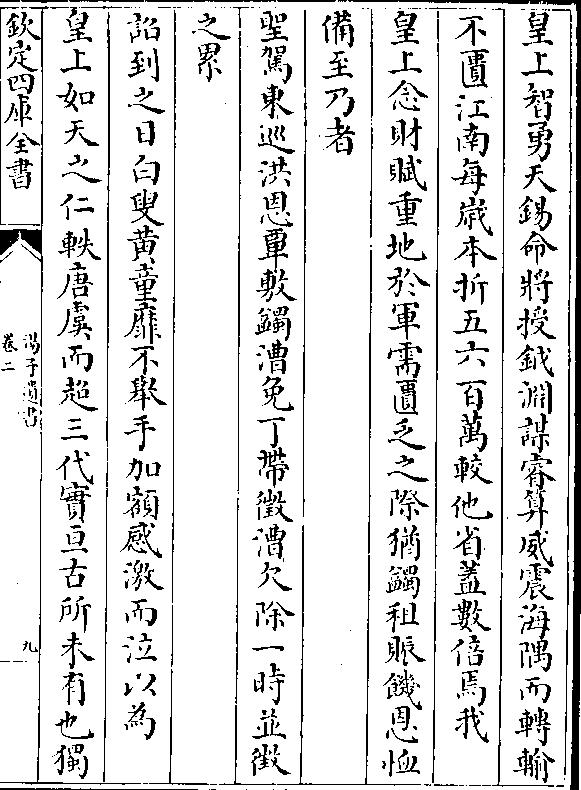 皇上智勇天錫命將授鉞淵謀睿算威震海隅而轉輸
不匱江南每歳本折五六百萬較他省蓋數倍焉我
皇上念財賦重地於軍需匱乏之際猶蠲租賑饑恩恤
備至乃者
聖駕東巡洪恩覃敷蠲漕免丁帶徵漕欠除一時並徵
之累
詔到之日白叟黄童靡不舉手加額感激而泣以為
皇上如天之仁軼唐虞而超三代實亘古所未有也獨
欽定四庫全書
湯子遺書
卷二
九